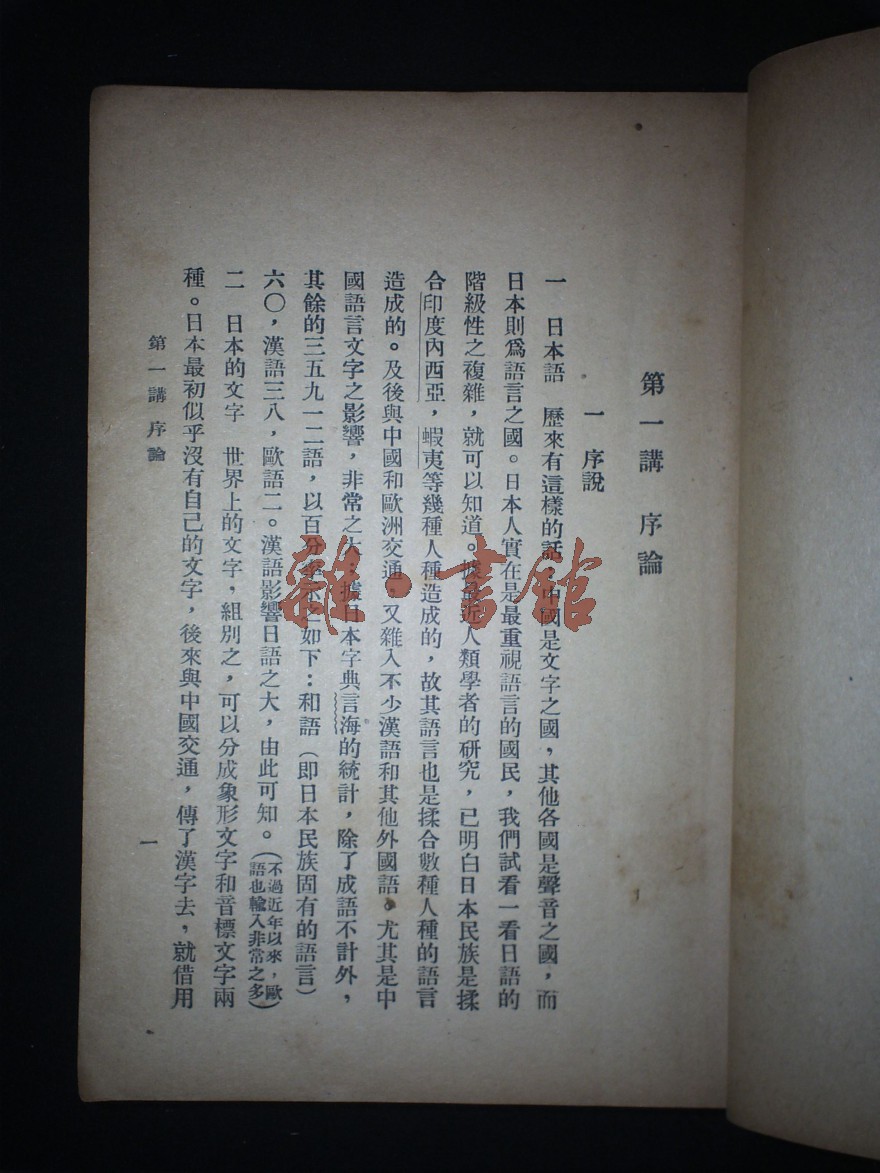 第一講 序論
一 序說
一 日本語 歷來有這樣的話:中國是文字之國,其他各國是聲音之國,而
日本則爲語言之國。日本人實在是最重視語言的國民,我們試看一看日語的
階級性之複雜,就可以知道。據最近人類學者的研究,已明白日本民族是揉
合印度內西亞,蝦夷等幾種人種造成的,故其語言也是揉合數種人種的語言
造成的。及後與中國和歐洲交通,又雜入不少漢語和其他外國語。尤其是中
國語言文字之影響,非常之大;據日本字典言海的統計,除了成語不計外,
其餘的三五九一二語,以百分率示之如下:和語(即日本民族固有的語言)
六〇,漢語三八,歐語二。漢語影響日語之大,由此可知。(不過近年以來,歐
語也輸入非常之多)
二 日本的文字 世界上的文字,組別之,可以分成象形文字和音標文字兩
種。日本最初似乎沒有自己的文字,後來與中國交通,傳了漢字去,就借用
第一講 序論
一
雜·書館